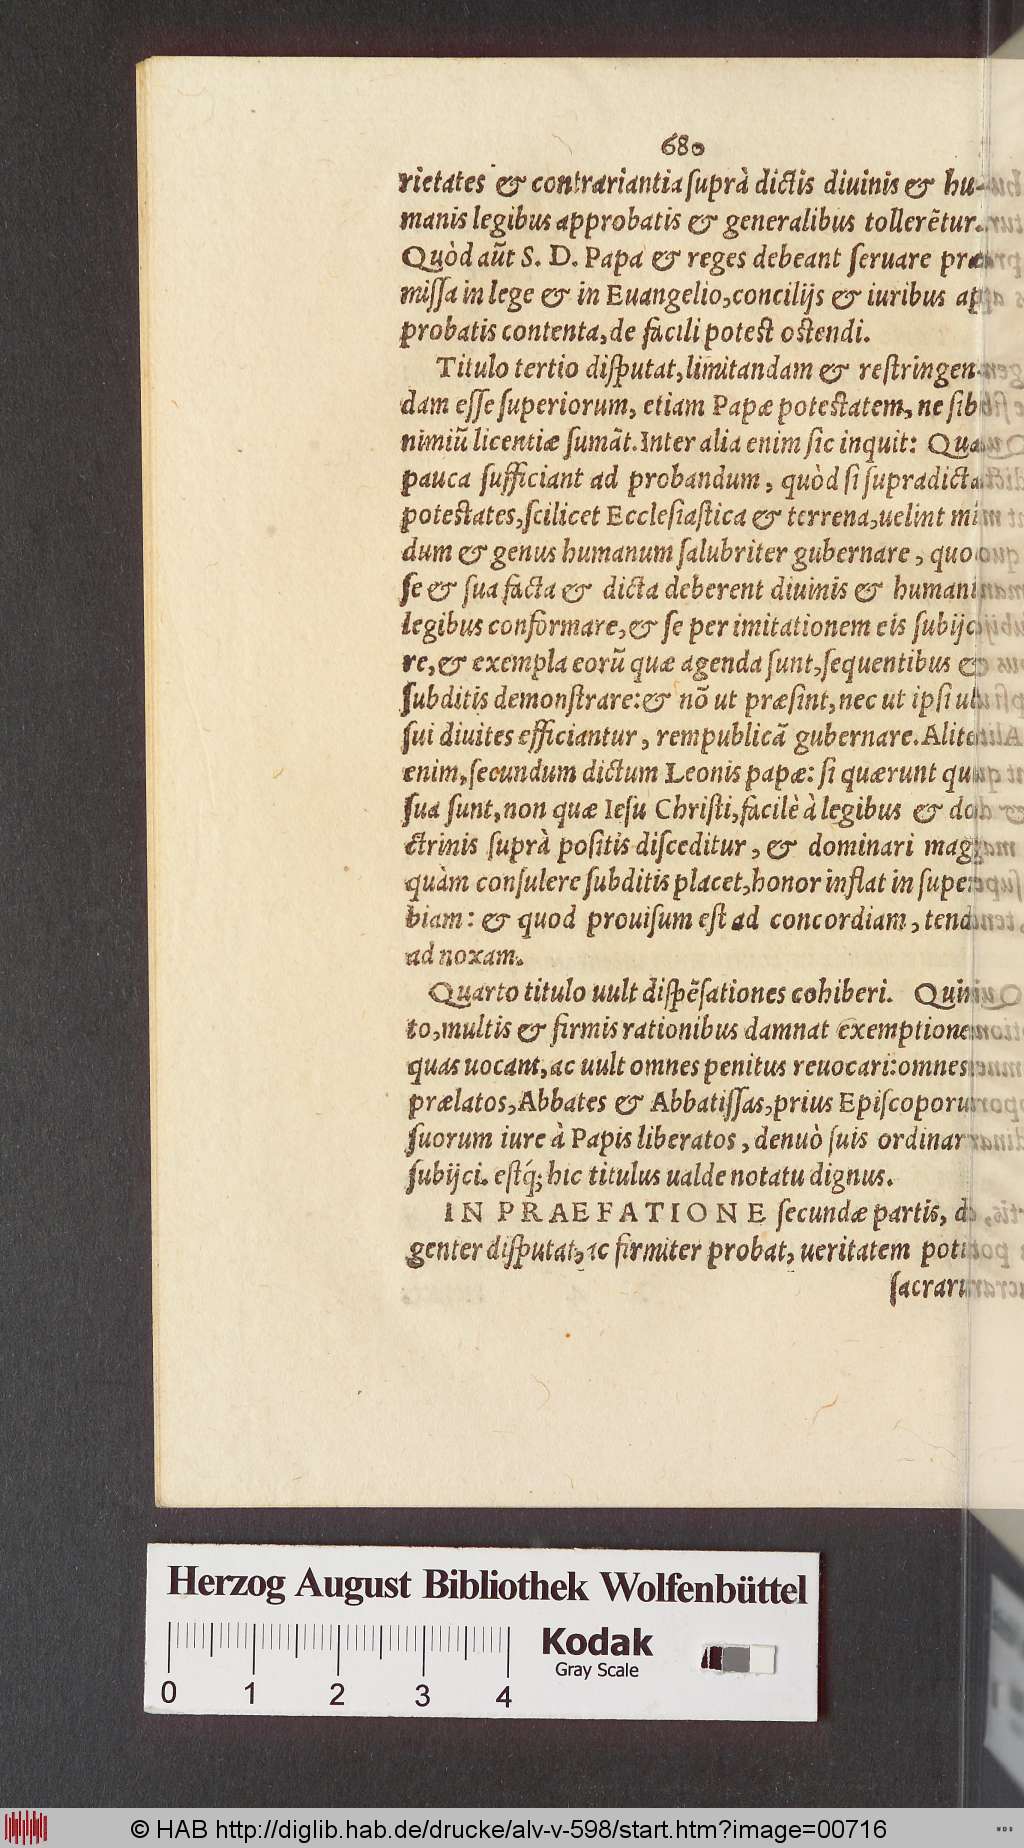 680
rietates & contrariantia suprà dictis diuinis & hu-
manis legibus approbatis & generalibus tollerẽtur.
Quòd aũt S. D. Papa & reges debeant seruare præ
missa in lege & in Euangelio, concilijs & iuribus ap
probatis contenta, de facili potest ostendi.
Titulo tertio disputat, limitandam & restringen
dam esse superiorum, etiam Papæ potestatem, ne sib
nimiũ licentiæ sumãt. Inter alia enim sic inquit: Qua
pauca sufficiant ad probandum, quòd si supradicta
potestates, scilicet Ecclesiastica & terrena, uelint mu
dum & genus humanum salubriter gubernare, quo
se & sua facta & dicta deberent diuinis & humani
legibus conformare, & se per imitationem eis subijc
re, & exempla eorũ quæ agenda sunt, sequentibus &
subditis demonstrare: & nõ ut præsint, nec ut ipsi ul
sui diuites efficiantur, rempublicã gubernare. Alite
enim, secundum dictum Leonis papæ: si quærunt qu
sua sunt, non quæ Iesu Christi, facilè à legibus & do
ctrinis suprà positis disceditur, & dominari mag
quàm consulere subditis placet, honor inflat in super
biam: & quod prouisum est ad concordiam, tend
ad noxam.
Quarto titulo uult dispẽsationes cohiberi. Quin
to, multis & firmis rationibus damnat exemptione
quas uocant, ac uult omnes penitus reuocari: omnes
prælatos, Abbates & Abbatissas, prius Episcoporu
suorum iure à Papis liberatos, denuò suis ordinar
subijci. estq́; hic titulus ualde notatu dignus.
IN PRAEFATIONE secundæ partis, d
genter disputat, ac firmiter probat, ueritatem poti
sacraru
Herzog August Bibliothek Wolfenbüttel
Kodak
Gray Scale
0 1 2 3 4
© HAB http://diglib.hab.de/drucke/alv-v-598/start.htm?image=00716